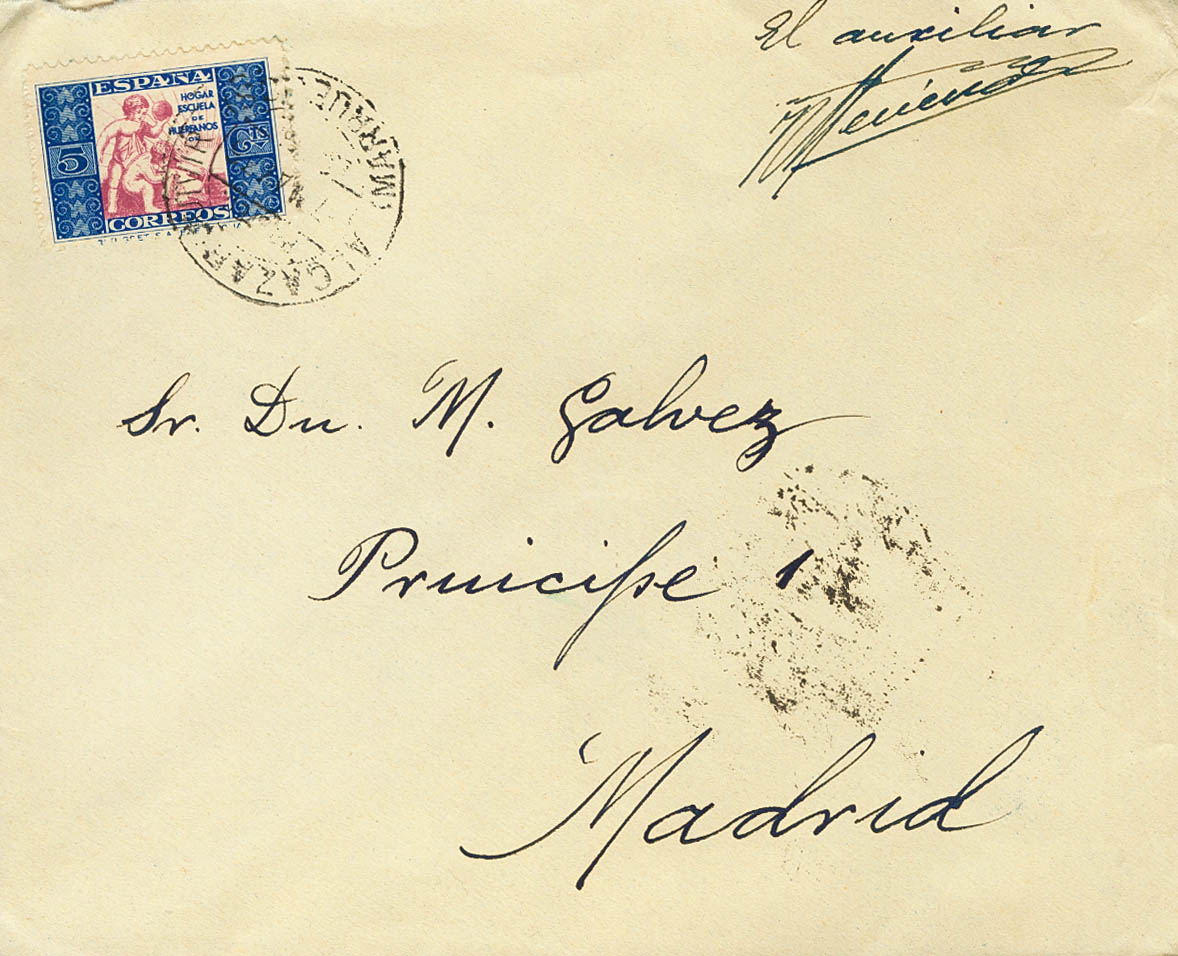 El auxiliar
ESPAÑA
HOGAR
ESCUELA
DE
HUERFANOS
DE
5
CTS
CORREOS
ALCAZAR
MARRUE
Sr. Dn. M. Galvez
Principe 1
Madrid